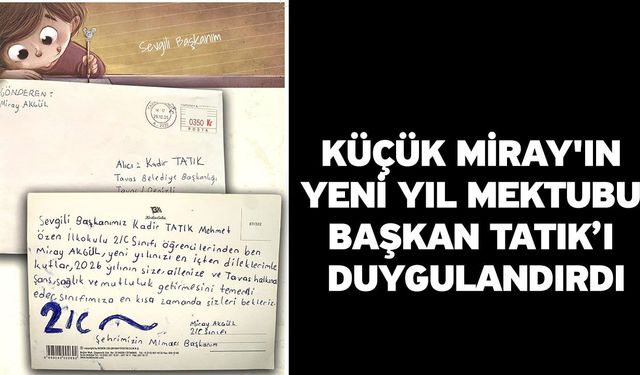 Sevgili Başkanım
GÖNDEREN:
Miray AKGÜL
0350 Kr
POSTA
Alıcı: Kadir TATIK
Tavas Belediye Başkanlığı
Tavas / Denizli
Sevgili Başkanımız Kadir TATIK Mehmet
Özen İlkokulu 2/C Sınıfı öğrencilerinden ben
Miray AKGÜL, yeni yılınızı en içten dileklerimle
kutlar, 2026 yılının size, ailenize ve Tavas halkına
şans, sağlık ve mutluluk getirmesini temenni
eder, sınıfımıza en kısa zamanda sizleri bekleriz.
2/C
Miray Akgül
2/C Sınıfı
Şehrimizin Mimarı Başkanım
KÜÇÜK MİRAY'IN
YENİ YIL MEKTUBU
BAŞKAN TATIK’I
DUYGULANDIRDI